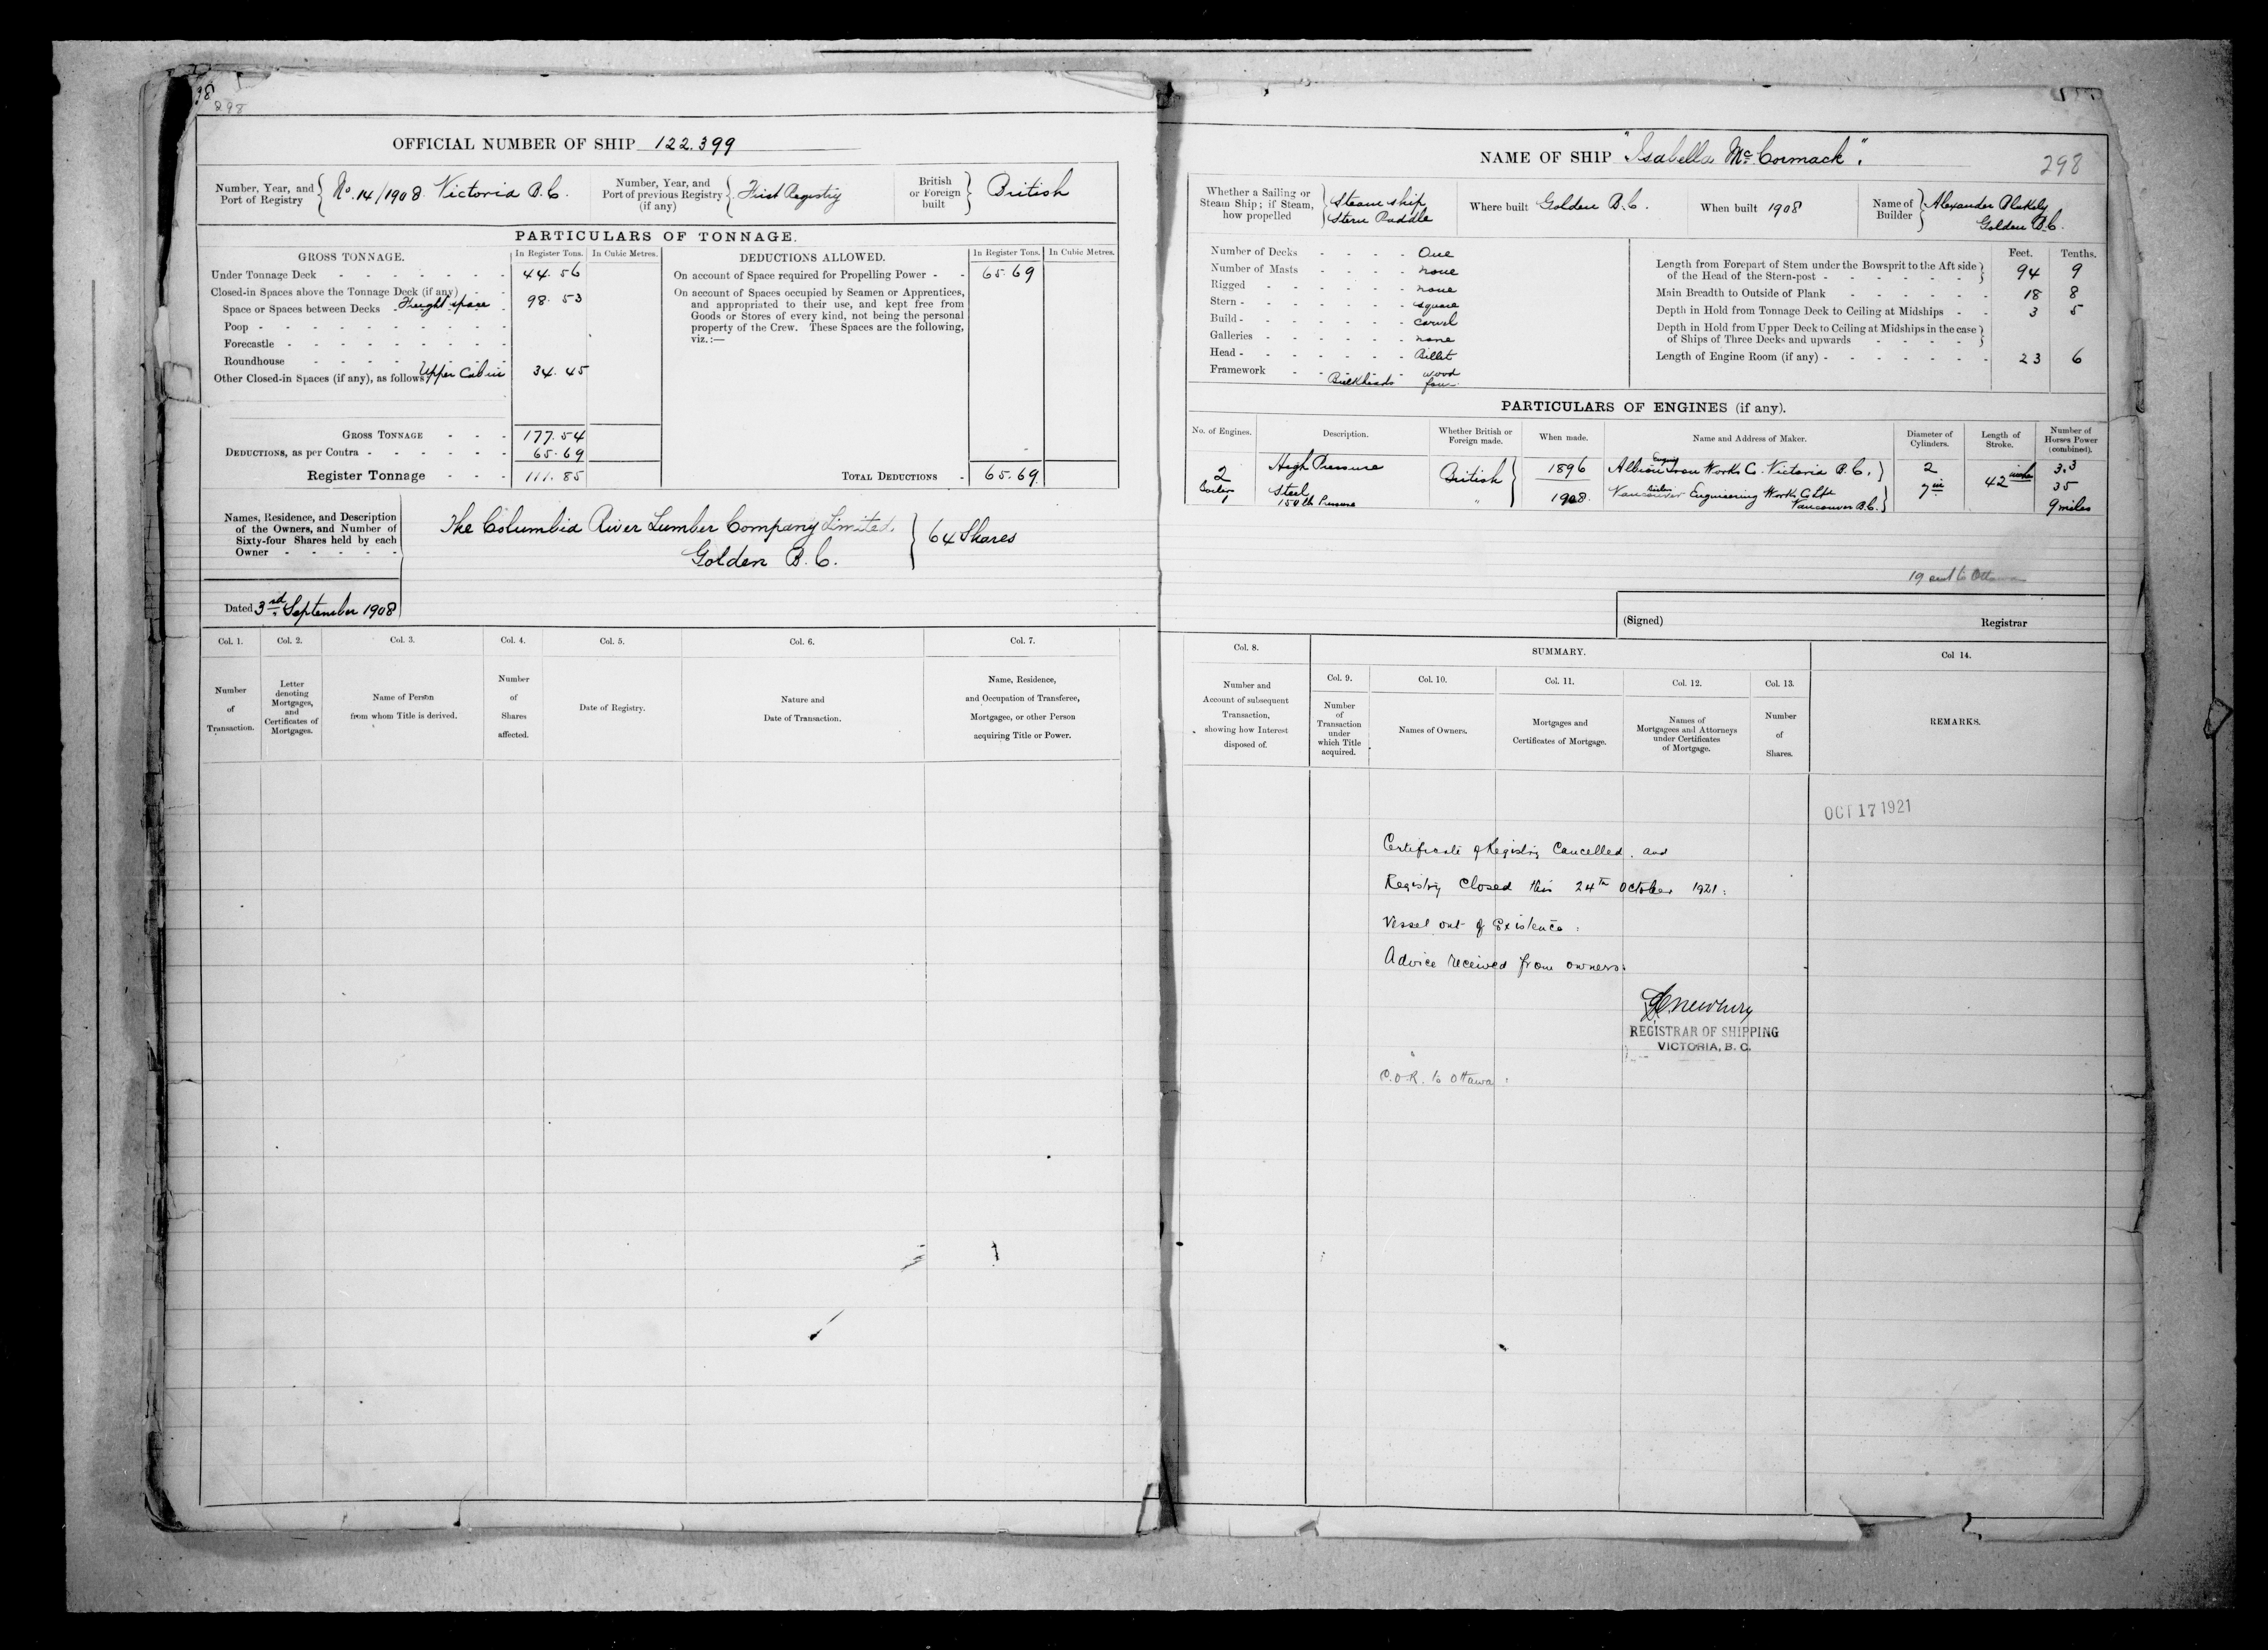 298
OFFICIAL NUMBER OF SHIP 122.399
Number, Year, and Port of Registry } No. 14/1908 Victoria B.C.
Number, Year, and Port of previous Registry (if any) { First Registry
British or Foreign built } British
PARTICULARS OF TONNAGE.
GROSS TONNAGE. In Register Tons. In Cubic Metres.
Under Tonnage Deck 44.56
Closed-in Spaces above the Tonnage Deck (if any)
Space or Spaces between Decks Freight space 98.53
Poop
Forecastle
Roundhouse
Other Closed-in Spaces (if any), as follows Upper Cabin 34.45
GROSS TONNAGE 177.54
DEDUCTIONS, as per Contra 65.69
Register Tonnage 111.85
DEDUCTIONS ALLOWED. In Register Tons. In Cubic Metres.
On account of Space required for Propelling Power 65.69
On account of Spaces occupied by Seamen or Apprentices,
and appropriated to their use, and kept free from
Goods or Stores of every kind, not being the personal
property of the Crew. These Spaces are the following,
viz.:—
TOTAL DEDUCTIONS 65.69
Names, Residence, and Description
of the Owners, and Number of
Sixty-four Shares held by each
Owner
The Columbia River Lumber Company Limited
Golden B.C. } 64 Shares
Dated 3rd September 1908
Col. 1. Col. 2. Col. 3. Col. 4. Col. 5. Col. 6. Col. 7.
Number of Transaction.
Letter denoting Mortgages, and Certificates of Mortgages.
Name of Person from whom Title is derived.
Number of Shares affected.
Date of Registry.
Nature and Date of Transaction.
Name, Residence, and Occupation of Transferee, Mortgagee, or other Person acquiring Title or Power.
NAME OF SHIP "Isabella McCormack".
298
Whether a Sailing or Steam Ship; if Steam, how propelled } Steam ship Stern Paddle
Where built Golden B.C.
When built 1908
Name of Builder } Alexander Blakely Golden B.C.
Number of Decks One
Number of Masts none
Rigged none
Stern square
Build carvel
Galleries none
Head Billet
Framework wood
Bulkheads four
Feet. Tenths.
Length from Forepart of Stem under the Bowsprit to the Aft side of the Head of the Stern-post 94 9
Main Breadth to Outside of Plank 18 8
Depth in Hold from Tonnage Deck to Ceiling at Midships 3 5
Depth in Hold from Upper Deck to Ceiling at Midships in the case of Ships of Three Decks and upwards
Length of Engine Room (if any) 23 6
PARTICULARS OF ENGINES (if any).
No. of Engines. Description. Whether British or Foreign made. When made. Name and Address of Maker. Diameter of Cylinders. Length of Stroke. Number of Horses Power (combined).
2 High Pressure British 1896 Engines Albion Iron Works Co. Victoria B.C. 2 42 inches 3.3
Boilers Steel 35
1 150 lb Pressure " 1908. Boiler Vancouver Engineering Works Co Ltd Vancouver B.C. 7 in 9 miles
19 sent to Ottawa
(Signed) Registrar
Col. 8. SUMMARY. Col 14.
Col. 9. Col. 10. Col. 11. Col. 12. Col. 13.
Number and Account of subsequent Transaction, showing how Interest disposed of.
Number of Transaction under which Title acquired.
Names of Owners.
Mortgages and Certificates of Mortgage.
Names of Mortgagees and Attorneys under Certificates of Mortgage.
Number of Shares.
REMARKS.
OCT 17 1921
Certificate of Registry Cancelled, and
Registry Closed this 24th October 1921:
Vessel out of Existence:
Advice received from owners:
Newbury
REGISTRAR OF SHIPPING
VICTORIA, B. C.
C.O.R. to Ottawa